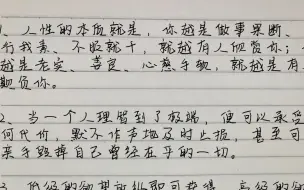 1、人性的本质就是，你越是做事果断、
行我素、不服就干，就越有人佩贺你；
越是老实、善良、心慈手软，就越是有
欺负你。
2、当一个人理智到了极端，便可以承受
何代价，默不作声地及时止损，甚至可
亲手毁掉自己曾经在乎的一切。